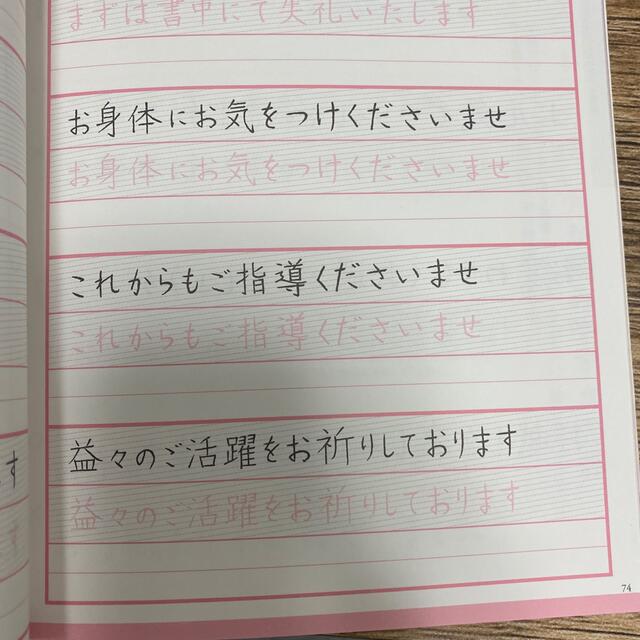 まずは書中にて失礼いたします
お身体にお気をつけくださいませ
お身体にお気をつけくださいませ
これからもご指導くださいませ
これからもご指導くださいませ
益々のご活躍をお祈りしております
益々のご活躍をお祈りしております
す
74